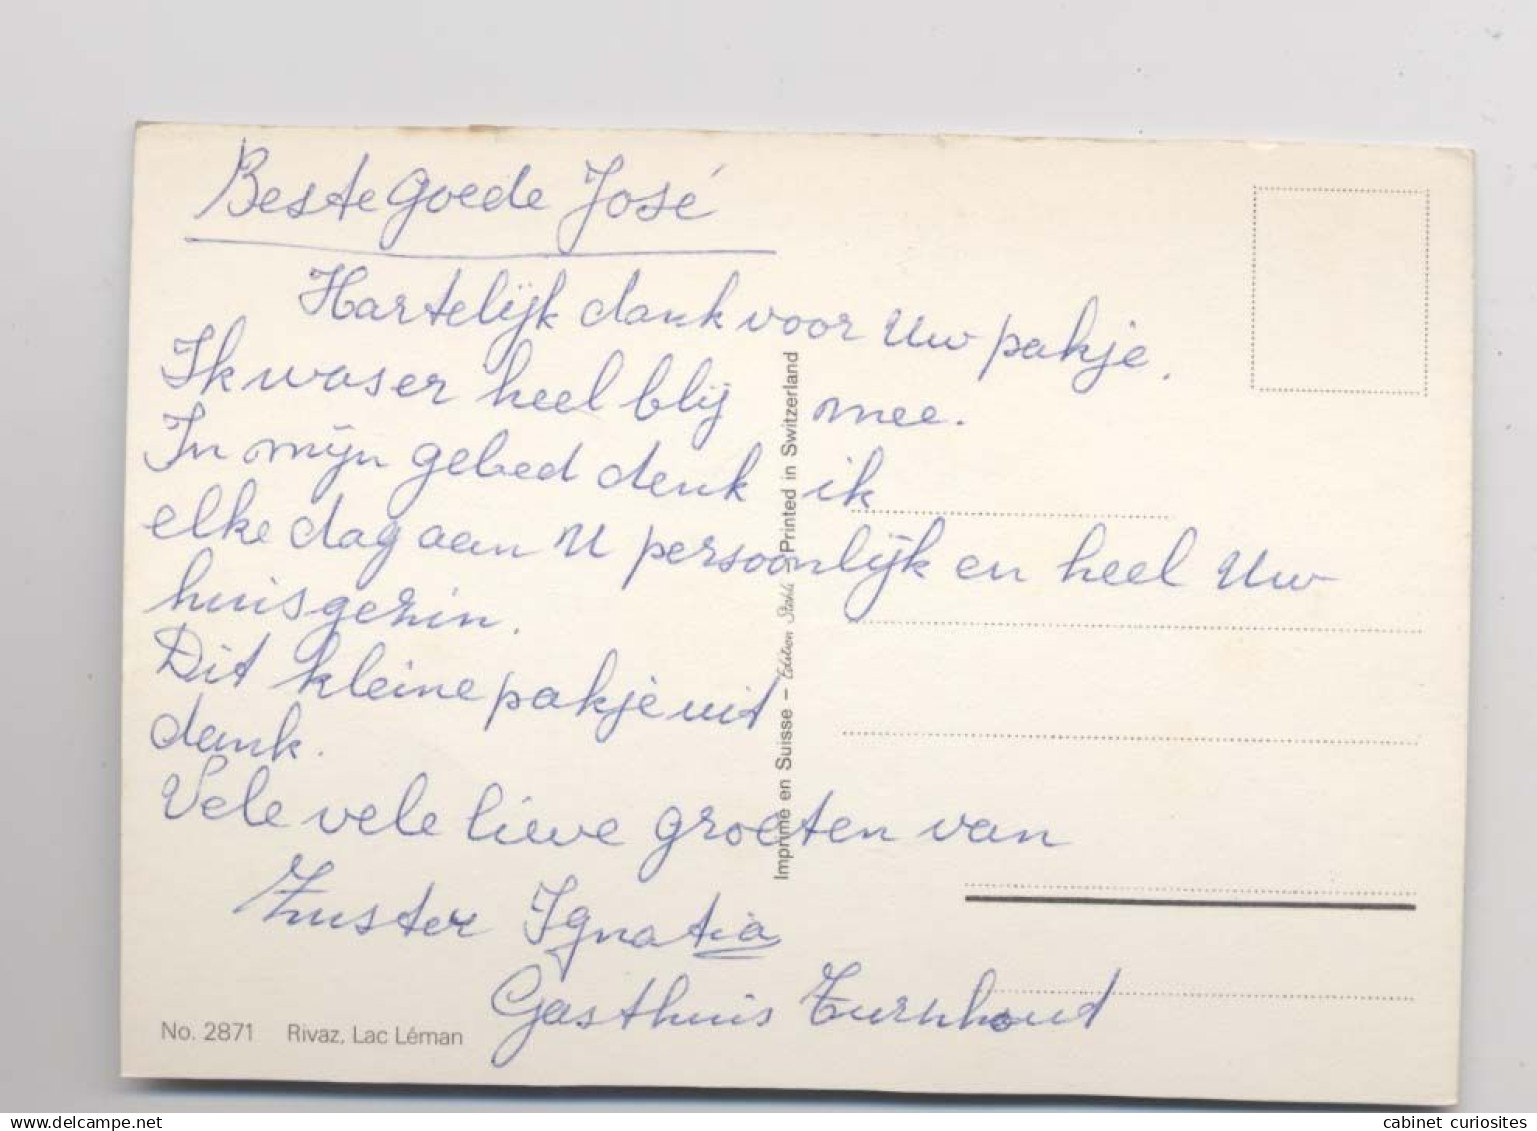 Beste goede José
Hartelijk dank voor Uw pakje.
Ik was er heel blij mee.
In mijn gebed denk ik
elke dag aan U persoonlijk en heel Uw
huisgezin.
Dit kleine pakje uit
dank.
Vele vele lieve groeten van
Zuster Ignatia
Gasthuis Turnhout
No. 2871 Rivaz, Lac Léman
Imprimé en Suisse – Edition Stehli – Printed in Switzerland
delcampe.net
cabinet curiosites